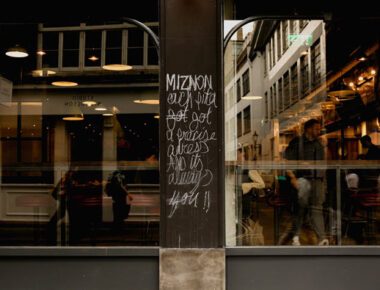 MIZNON
each pita
got
a precise
adress
AND its
always
you!!